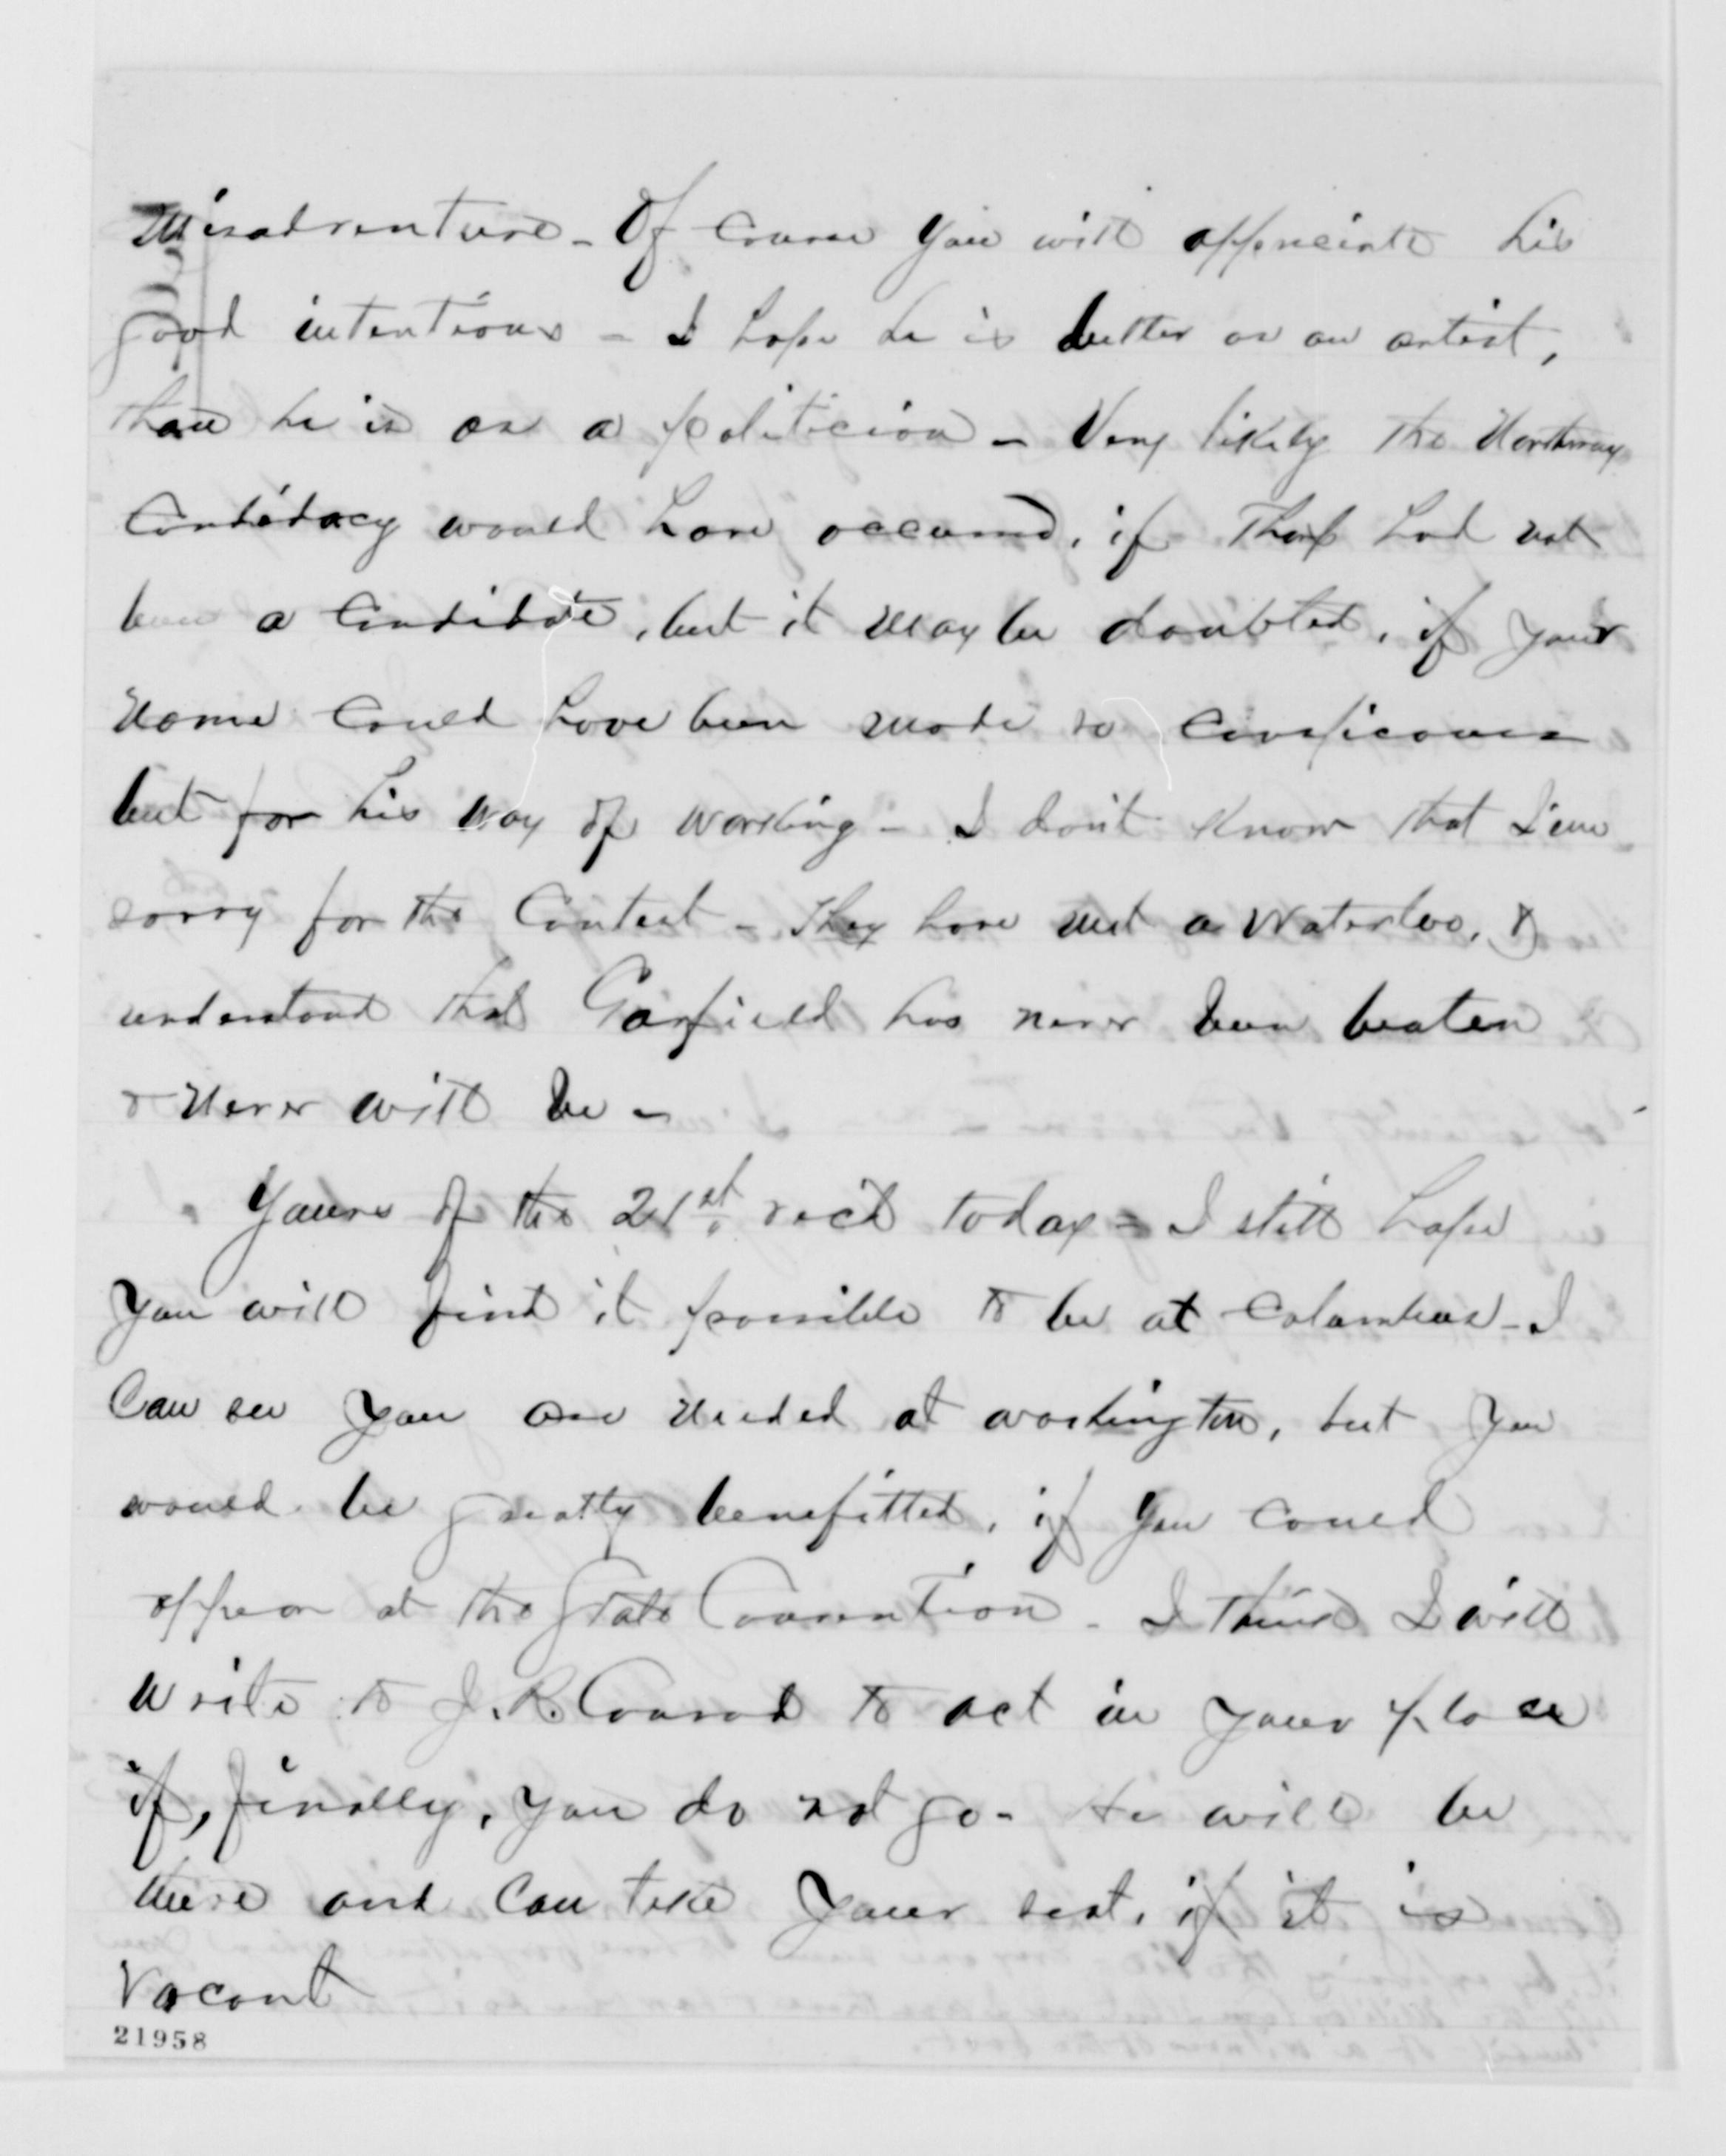 misadventure - Of course you will appreciate his
good intentions - I hope he is better as an artist,
than he is as a politician - Very likely the Northway
Candidacy would have occurred, if Thorp had not
been a Candidate, but it may be doubted, if your
name could have been made so conspicuous
but for his way of working - I don't know that I am
sorry for the Contest - They have met a Waterloo, &
understand that Garfield has never been beaten
& never will be -
Yours of the 21st rec'd today - I still hope
you will find it possible to be at Columbus - I
Can see you are needed at Washington, but you
would be greatly benefitted, if you could
appear at the State Convention - I think I will
write to J. R. Conrad to act in your place
if, finally, you do not go - He will be
there and can take your seat, if it is
vacant
21958